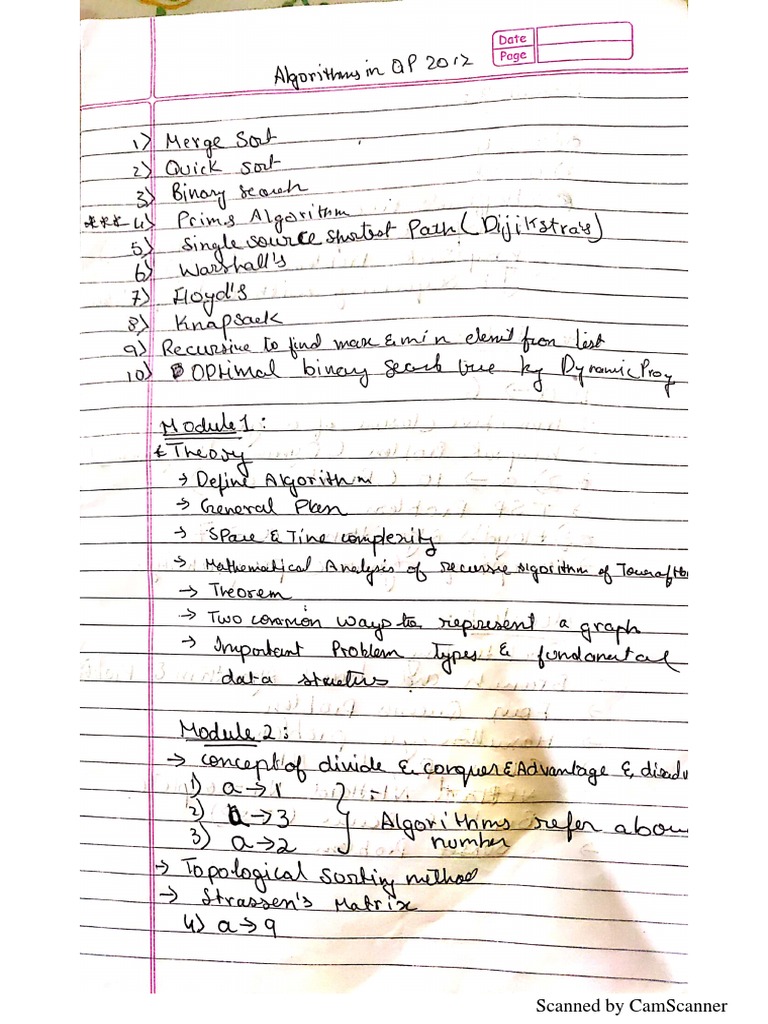 Date
Page
Algorithms in QP 2017
1) Merge Sort
2) Quick Sort
3) Binary Search
*** 4) Prims Algorithm
5) Single source shortest Path (Dijikstra's)
6) Warshall's
7) Floyd's
8) Knapsack
9) Recursive to find max & min elemt from list
10) Optimal binary search tree by Dynamic Prog
Module 1:
* Theory
→ Define Algorithm
→ General Plan
→ Space & Time complexity
→ Mathematical Analysis of recursive algorithm of
→ Theorem
→ Two common ways to represent a graph
→ Important Problem types & fundamental
data structures
Module 2:
→ concept of divide & conquer & Advantage &
1) a → 1
2) a → 3
3) a → 2
Algorithms refer above
number
→ Topological Sorting method
→ Strassen's Matrix
4) a → 9
Scanned by CamScanner